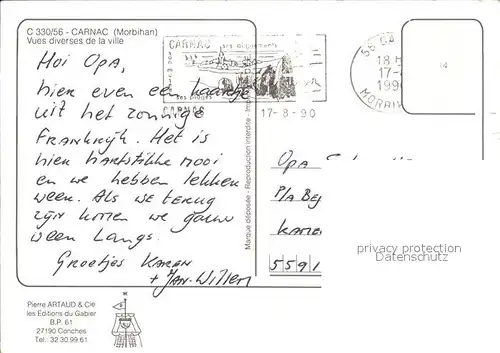 C 330/56 - CARNAC (Morbihan)
Vues diverses de la ville
Hoi Opa,
hier even een kaartje
uit het zonnige
Frankrijk. Het is
hier hartstikke mooi
en we hebben lekker
weer. Als we terug
zijn komen we gauw
weer langs.
Groetjes Karen
+ Jan-Willem
CARNAC
ses alignements
ses plages
CARNAC
17-8-90
56 CA
18
17-
199
MORBIH
Marque déposée - Reproduction interdite
Opa
P/A Be
Kame
5591
privacy protection
Datenschutz
Pierre ARTAUD & Cie
les Editions du Gabier
B.P. 61
27190 Conches
Tel.: 32.30.99.61